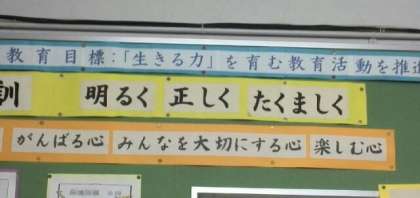 教育目標:「生きる力」を育む教育活動を推進
訓 明るく 正しく たくましく
がんばる心 みんなを大切にする心 楽しむ心